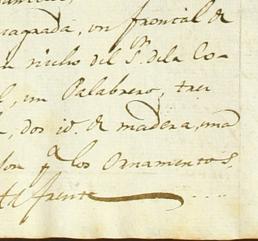 sagrada, un frontal de
nicho del S.r dela Co-
un Palabrero, tres
dos id. de madera, una
los Ornamentos.
te frente